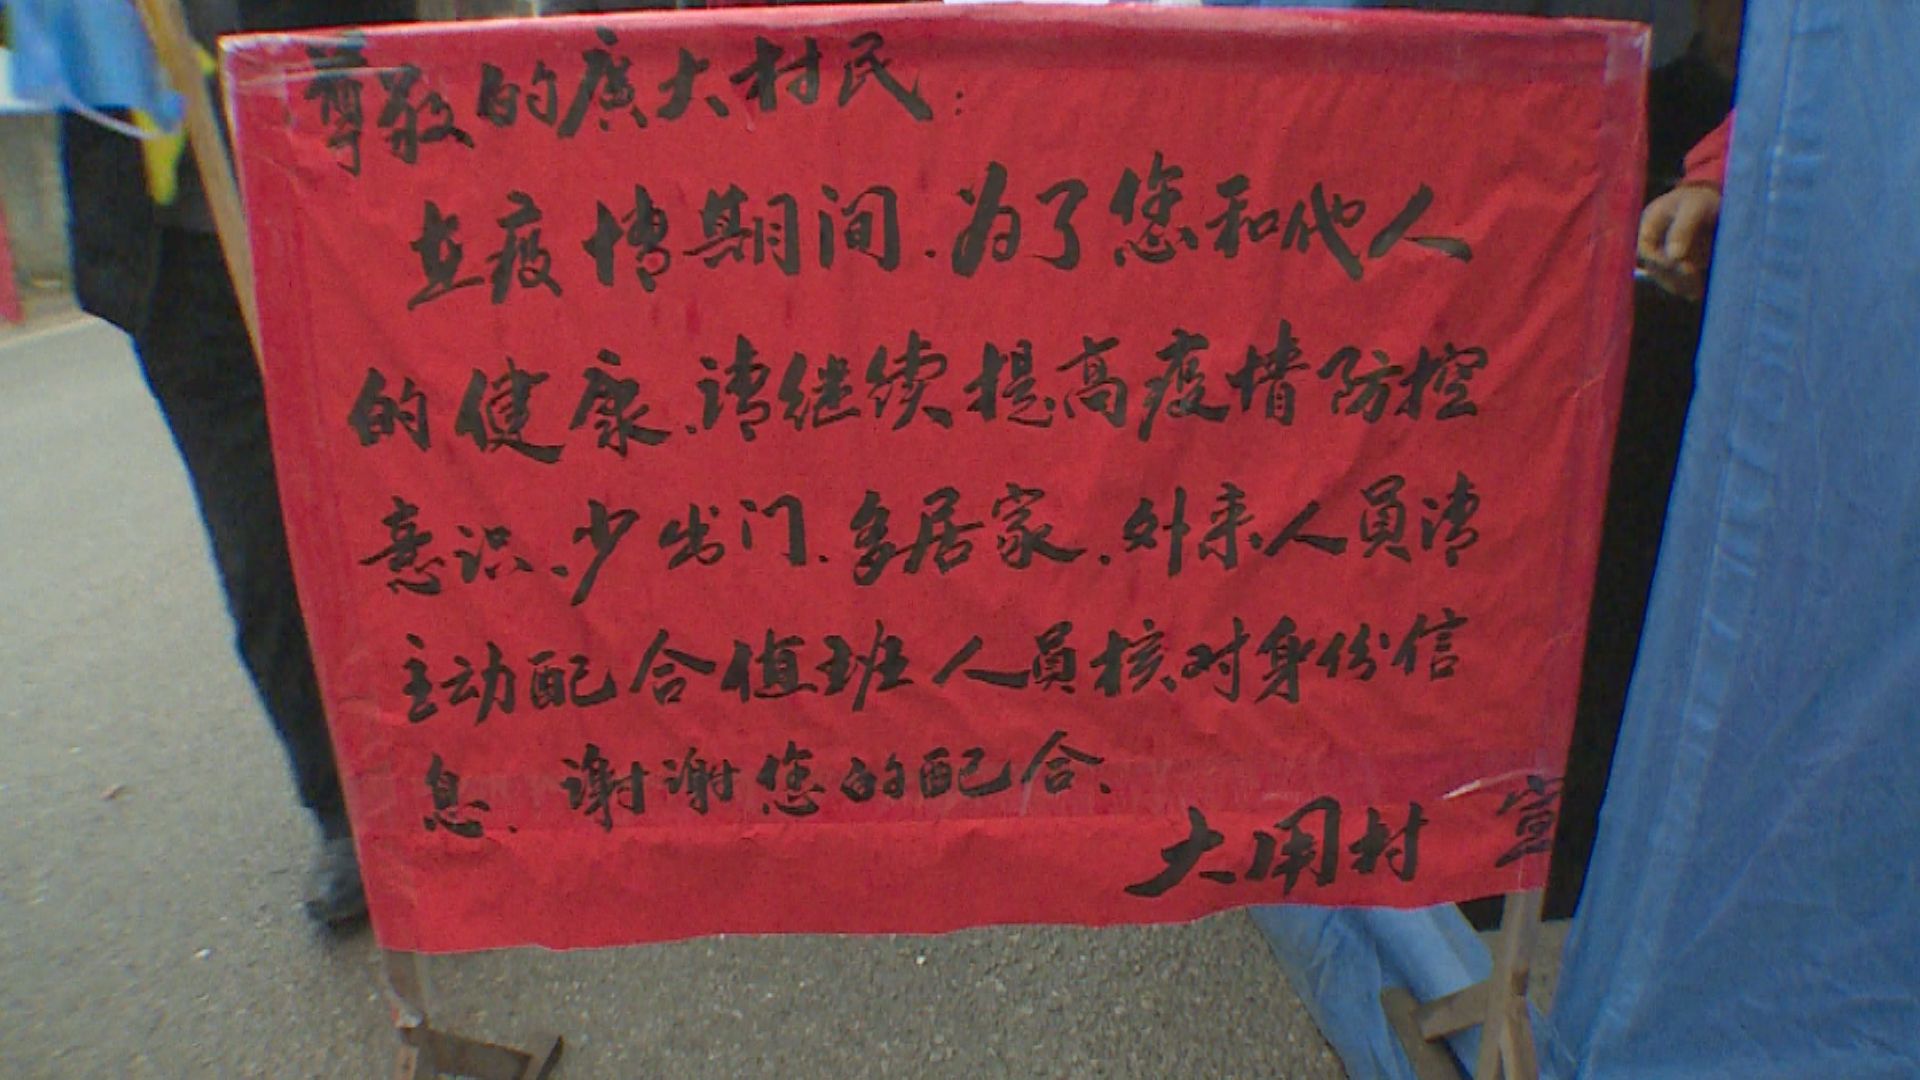 尊敬的廣大村民：
在疫情期间.为了您和他人
的健康.请继续提高疫情防控
意识、少出门.多居家.外来人员请
主动配合值班人员核对身份信
息.谢谢您的配合.
大用村 宣